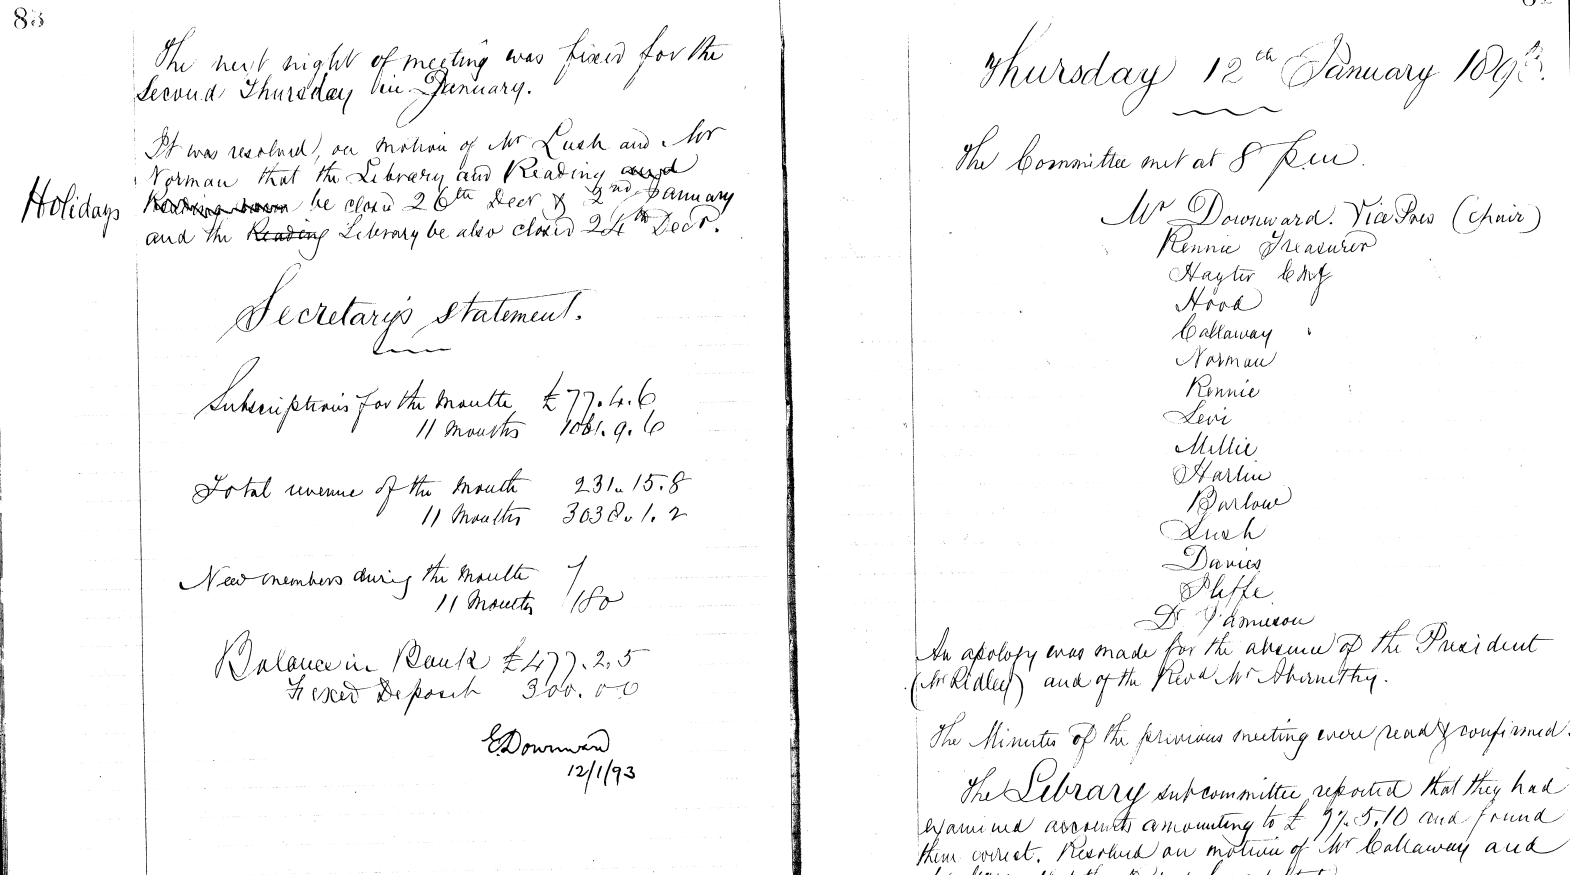 83
The next night of meeting was fixed for the
Second Thursday in January.
It was resolved, on motion of Mr Lush and Mr
Norman that the Library and Reading and
Holidays
Reading room be closed 26th Decr & 2nd January
and the Reading Library be also closed 24th Decr.
Secretary's statement.
Subscriptions for the Month £77.4.6
11 Months 1061.9.6
Total revenue of the Month 231.15.8
11 Months 3038.1.2
New members during the Month 7
11 Months 180
Balance in Bank £477.2.5
Fixed Deposit 300.00
EDownward
12/1/93
Thursday 12th January 1893.
The Committee met at 8 p.m.
Mr Downward. Vice Pres (Chair)
Rennie Treasurer
Hayter CMG
Hood
Callaway
Norman
Rennie
Levi
Millie
Harlin
Barlow
Lush
Davies
Dr Jamieson
An apology was made for the absence of the President
(Mr Ridley) and of the Revd Mr Abernethy.
The Minutes of the previous meeting were read & confirmed.
The Library subcommittee reported that they had
examined accounts amounting to £ 97.5.10 and found
them correct. Resolved on motion of Mr Callaway and